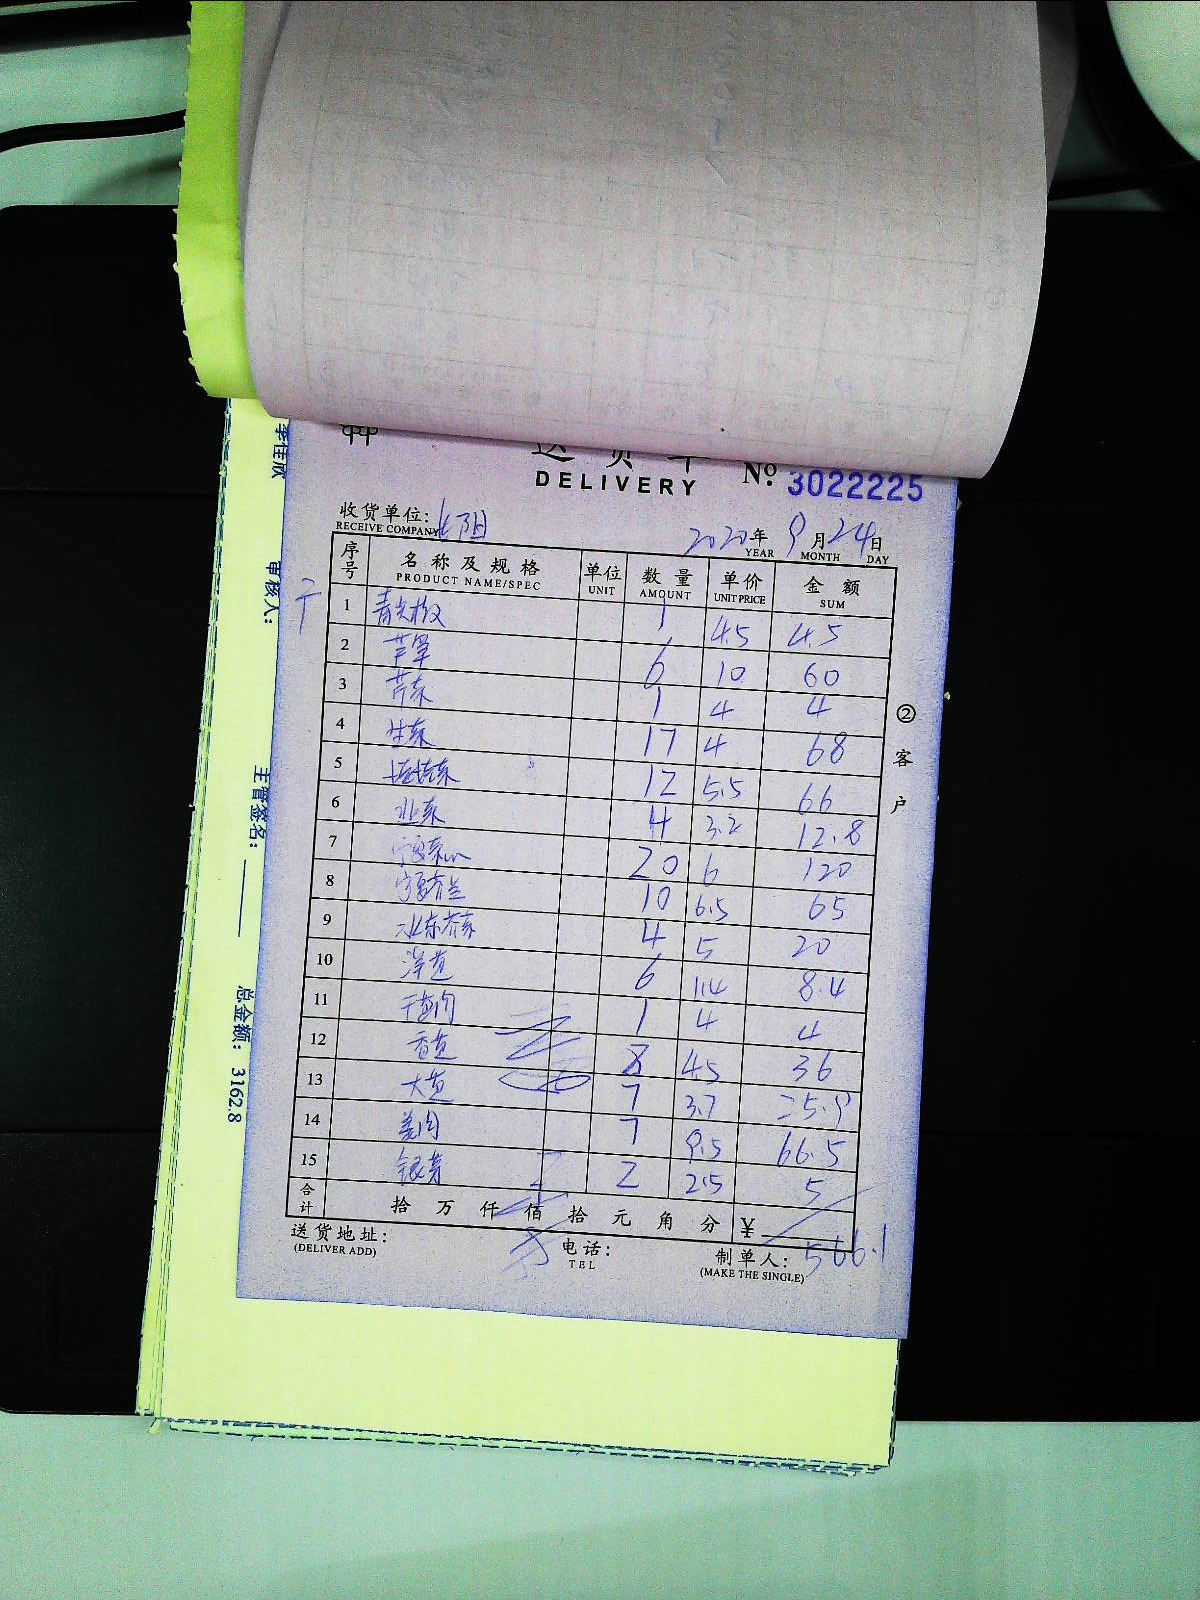 送货单
DELIVERY
№: 3022225
收货单位:
RECEIVE COMPANY
2020年 9月24日
YEAR MONTH DAY
序号 名称及规格 单位 数量 单价 金额
PRODUCT NAME/SPEC UNIT AMOUNT UNIT PRICE SUM
1 青尖椒 1 4.5 4.5
2 6 10 60
3 芹菜 1 4 4
4 生菜 17 4 68
5 12 5.5 66
6 4 3.2 12.8
7 宁夏菜心 20 6 120
8 宁夏芥兰 10 6.5 65
9 水东芥菜 4 5 20
10 洋葱 6 1.4 8.4
11 干葱肉 1 4 4
12 香葱 8 4.5 36
13 大葱 7 3.7 25.9
14 姜肉 7 9.5 66.5
15 银芽 2 2.5 5
合计 拾 万 仟 佰 拾 元 角 分 ¥
566.1
送货地址: 电话: 制单人:
(DELIVER ADD) TEL (MAKE THE SINGLE)
②客户
李佳欣
审核人:
主管签名:
总金额: 3162.8